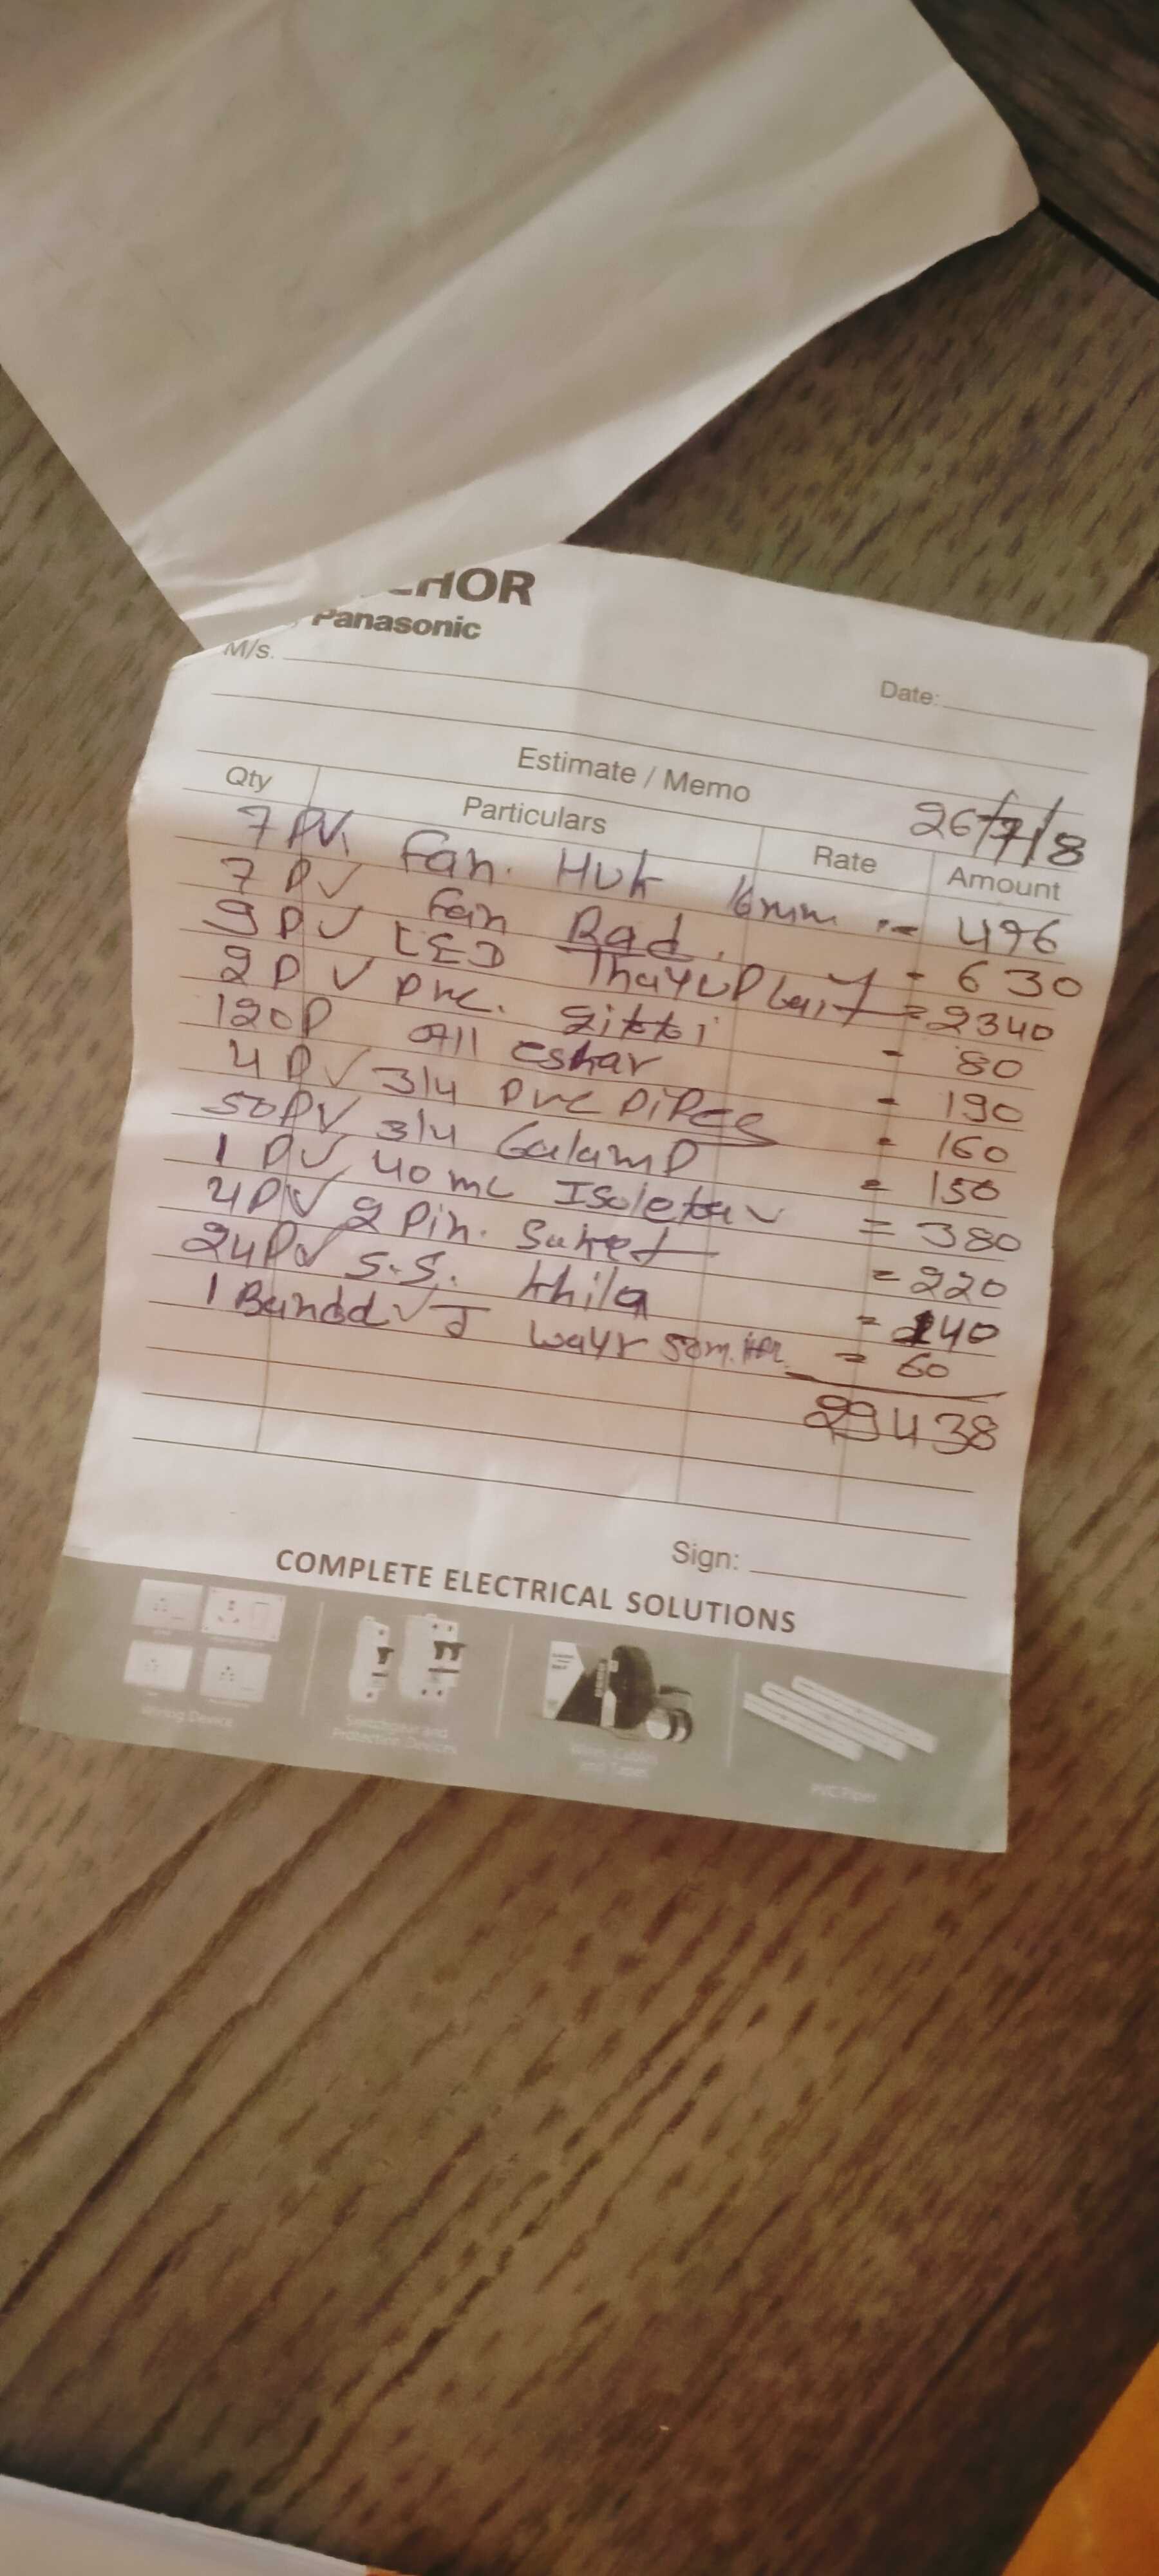 CHOR
Panasonic
M/s.
Date:
Estimate / Memo
26/7/8
Qty Particulars Rate Amount
7 P Fan. Huk 16mm = 496
7 P Fain Rad. = 630
9 P LED = 2340
2 P Pvc. gitti = 80
120P = 190
4 P 3/4 Pvc PiPes = 160
50P 3/4 GalamP = 150
1 P 40 Isoletar = 380
4P 2 Pin. Suket = 220
24P S.S. khila = 140
1 J wayr = 60
Sign:
COMPLETE ELECTRICAL SOLUTIONS
Wiring Device
Switchgear and
Protection Devices
Wires, Cables
and Tapes
PVC Pipes